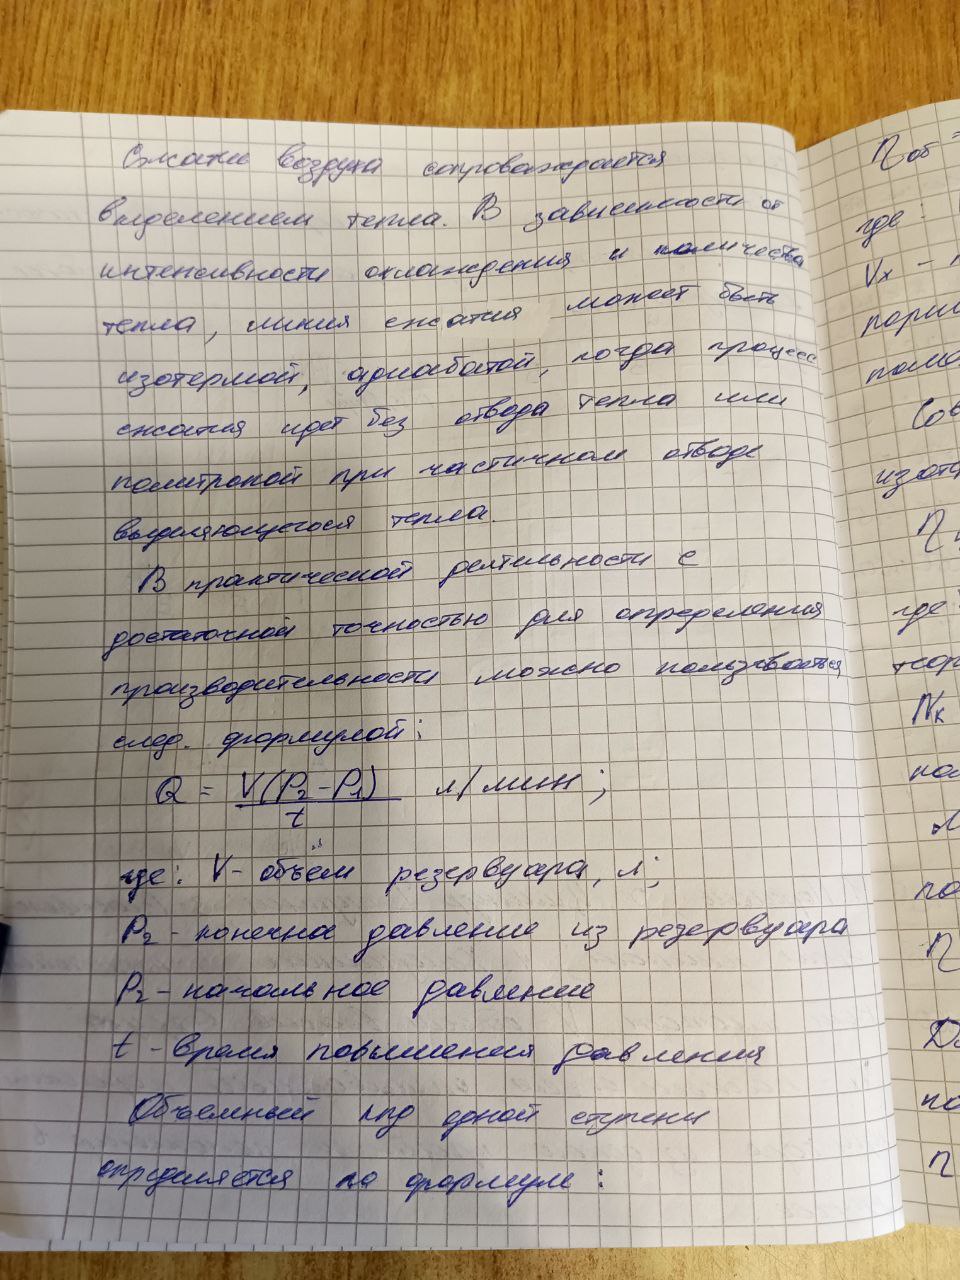 Сжатие воздуха сопроваждается
выделением тепла. В зависимости от
интенсивности охлаждения и количества
тепла, линия сжатия может быть
изотермой, адиабатой, когда процесс
сжатия идет без отвода тепла или
политропой при частичном отводе
выделяющегося тепла.
В практической деятельности с
достаточной точностью для определения
производительности можно пользоваться
след. формулой:
Q = V(P₂-P₁)/t л/мин;
где: V- объём резервуара, л;
P₂ - конечна давление из резервуара
P₂ - начальное давление
t - время повышения давления
Объемный кпд одной ступени
определяется по формуле:
η об =
где:
Vx -
η
где
Nк
η
η